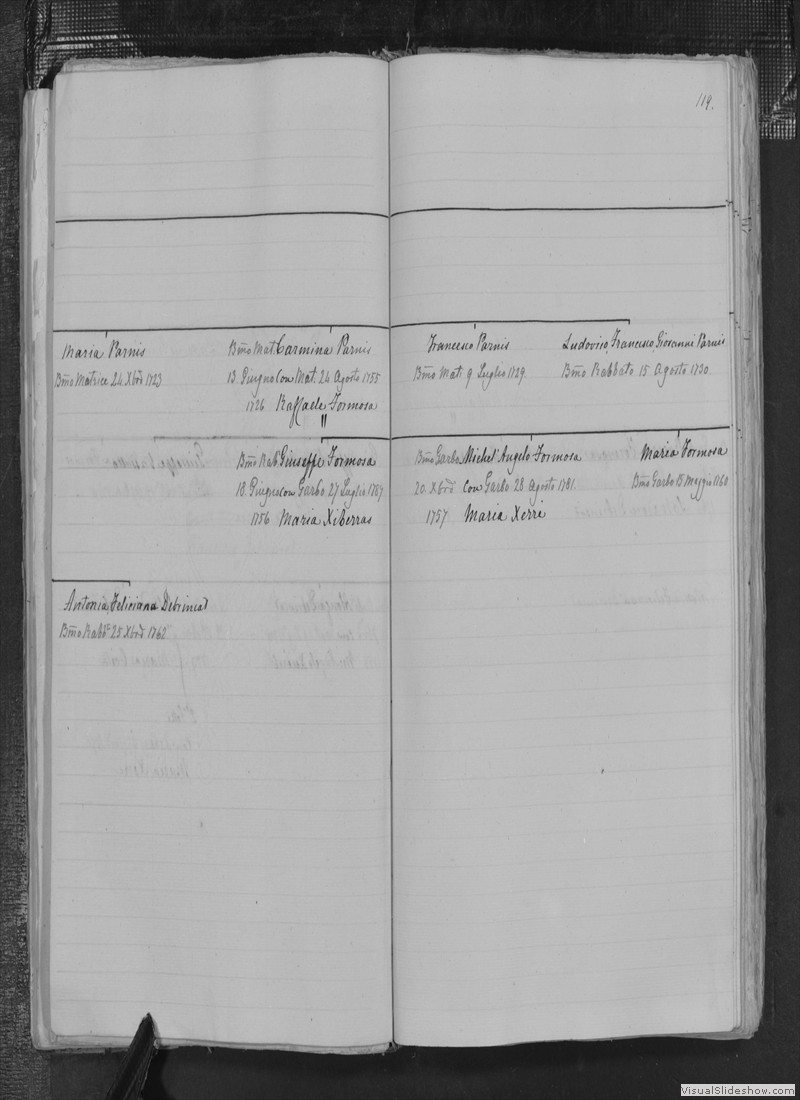 119.
Maria Parnis
Bmo Matrice 24 Xbre 1723
Bmo Mat: Carmina Parnis
13 Giugno Con Mat. 24 Agosto 1755
1726 Raffaele Formosa
"
Francesco Parnis
Bmo Mat: 9 Luglio 1729.
Ludovico, Francesco, Giovanni Parnis
Bmo Rabbato 15 Agosto 1730.
Bmo Rab: Giuseppe Formosa
18 Giugno Con Garbo 27 Luglio 1767
1756 Maria Xiberras
Bmo Garbo Michel'Angelo Formosa
20 Xbre Con Garbo 28 Agosto 1781.
1757 Maria Xerri
Maria Formosa
Bmo Garbo 15 Maggio 1760
Antonia, Feliciana Debrincat
Bmo Rabto 25 Xbre 1762
VisualSlideshow.com